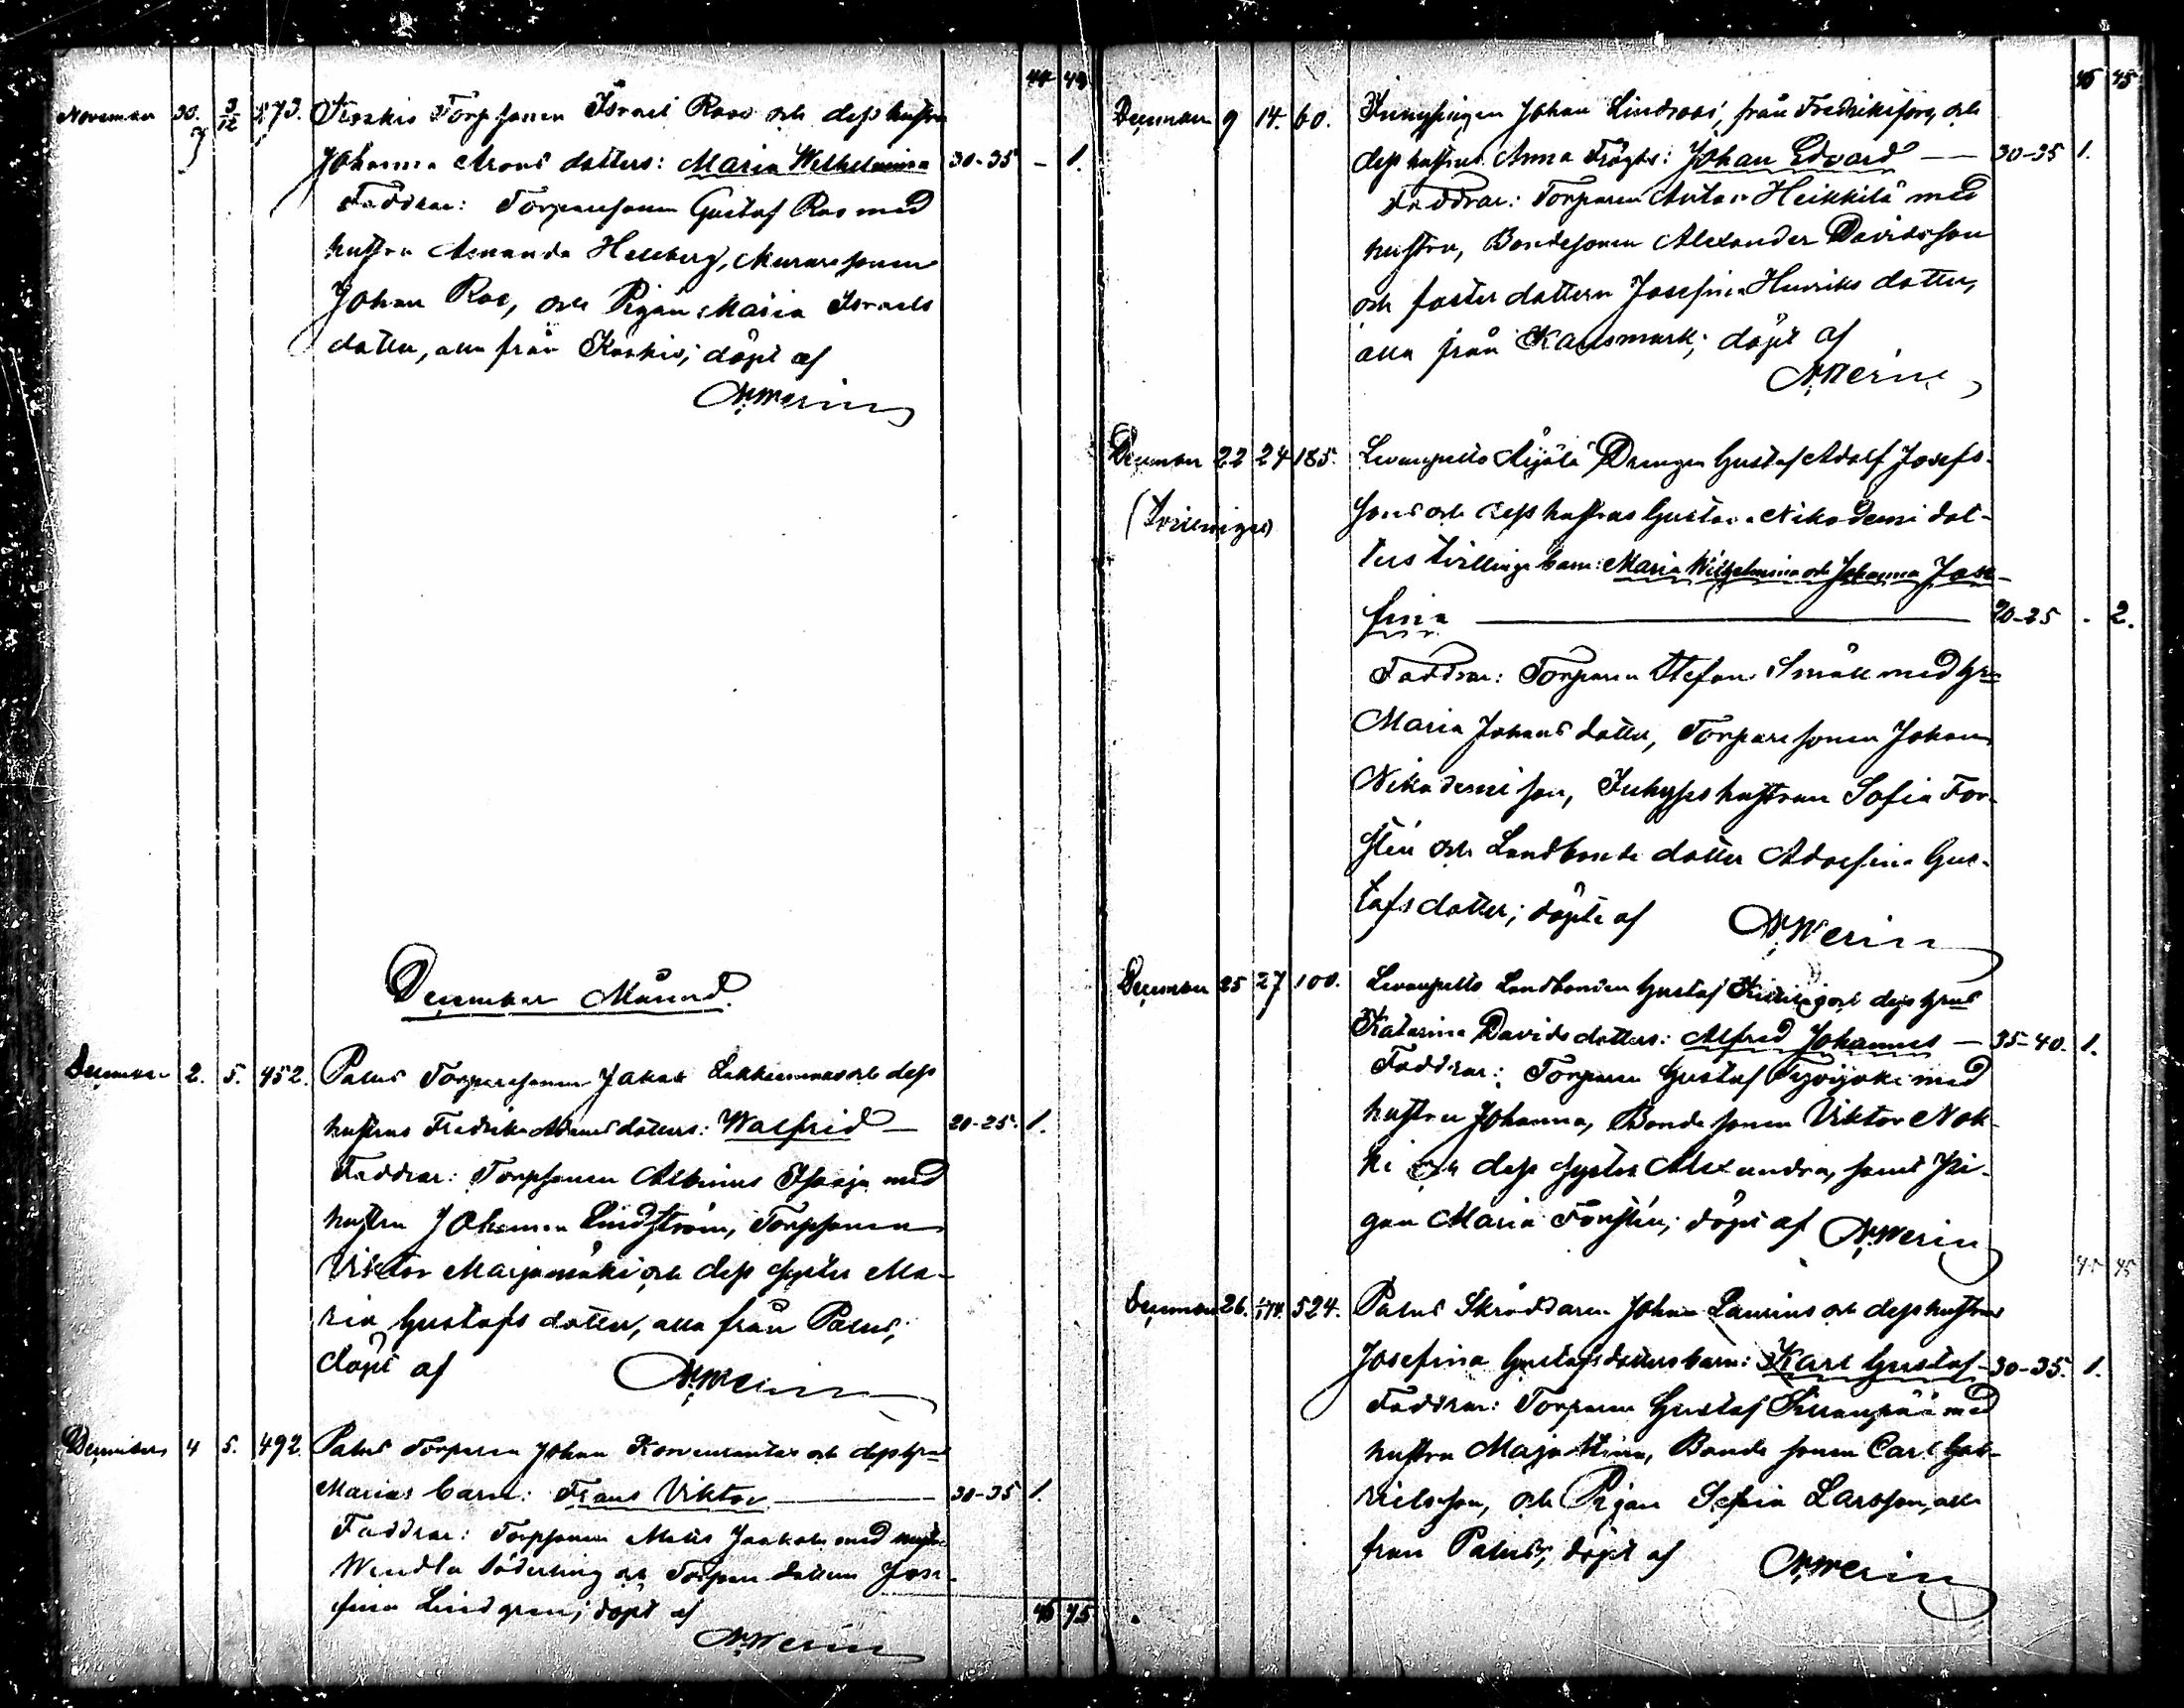 44 43
November 30. 3/12 273. Koskis Torpsonen Israel Roos och dess hustru
Johanna Arons dotters: Maria Wilhelmina 30-35 - 1.
Faddrar: Torparesonen Gustaf Ros med
hustru Amanda Hellberg, Muraresonen
Johan Ros, och Pigan Maria Israels
dotter, alla från Koskis; döpt af
N. Merin
December Månad.
December 2. 5. 452. Palus Torparesonen Jakob och dess
hustrus Fredrika dotters: Walfrid — 20-25. 1.
Faddrar: Torpsonen Albinus med
hustru Johanna Lindström, Torpsonen
Viktor Marjamäki och dess syster Ma-
ria Gustafs dotter, alla från Palus;
döpt af N. Merin
December 4 5. 492. Palus Torparen Johan och dess hrus
Marias barn: Frans Viktor — 30-35 1.
Faddrar: Torpsonen Matts Jaakola med hustru
Wendla Söderling och Torpare dottern Jose-
fina Lindgren; döpt af
45 45
N. Merin
45 45
December 9 14. 60. Inhysingen Johan Lindroos', från Fredriksfors, och
dess hustrus Anna : Johan Edvard — 30-35 1.
Faddrar: Torparen Anton Heikkilä med
hustru, Bondesonen Alexander Davidsson
och foster dottern Josefina Henriks dotter,
alla från Karlsmark; döpt af
N. Merin
December 22 24 185. Levanpelto Äijälä Drengen Gustaf Adolf Josefs-
(Tvillingar) sons och dess hustrus Gustava Nikodemi dot-
ters tvillinge barn: Maria Wilhelmina och Johanna Jose-
fina — 20-25 - 2.
Faddrar: Torparen Stefan Småll med hru
Maria Johans dotter, Torpare sonen Johan
Nikodemi son, Inhyses hustrun Sofia For-
stén och Landbonde dotter Adolfina Gus-
tafs dotter; döpte af N. Merin
December 25 27 100. Levanpelto Landbonden Gustaf och dess hrus
Katarina Davids dotters: Alfred Johannes — 35-40. 1.
Faddrar: Torparen Gustaf Syvijoki med
hustru Johanna, Bonde sonen Viktor Nok-
ki och dess syster Alexandra, samt Pi-
gan Maria Forstén; döpt af N. Merin
45 45
December 26. 524. Palus Skräddaren Johan Laurius och dess hustrus
Josefina Gustafsdotters barn: Karl Gustaf — 30-35. 1.
Faddrar: Torparen Gustaf med
hustru Maja Stina, Bonde sonen Carl Gab-
rielsson, och Pigan Sofia Larsson, alla
från Palus; döpt af N. Merin